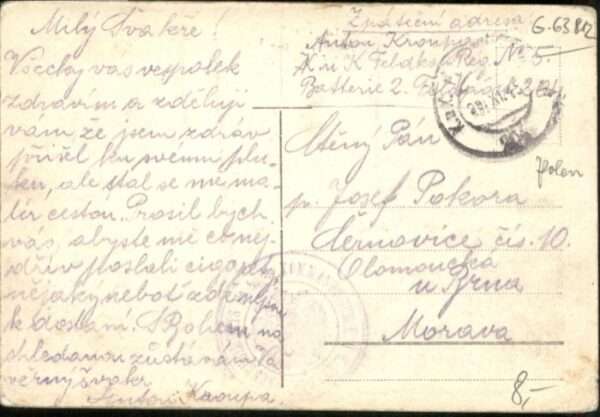 Milý Švakře!
Všecky vás vespolek
zdravím a zděluji
vám že jsem zdráv
přišel ku svému plu-
ku, ale stal se me ma-
lér cestou. Prosil bych
vás, abyste mě co nej-
dřív poslali cigaret
nějaký neboť zde nejsou
k dostaní. S Bohem na
shledanou zůstávám Vá
věrný švakr
Anton Kroupa.
Zpáteční adresa
Anton Kroupa
K. u. K. Feldko. Reg. No 5.
Batterie 2.
Ctěný Pán
p. Josef Pokora
Černovice čís. 10.
Olomoucka
u Brna
Morava
G. 63812
Polon
8,-